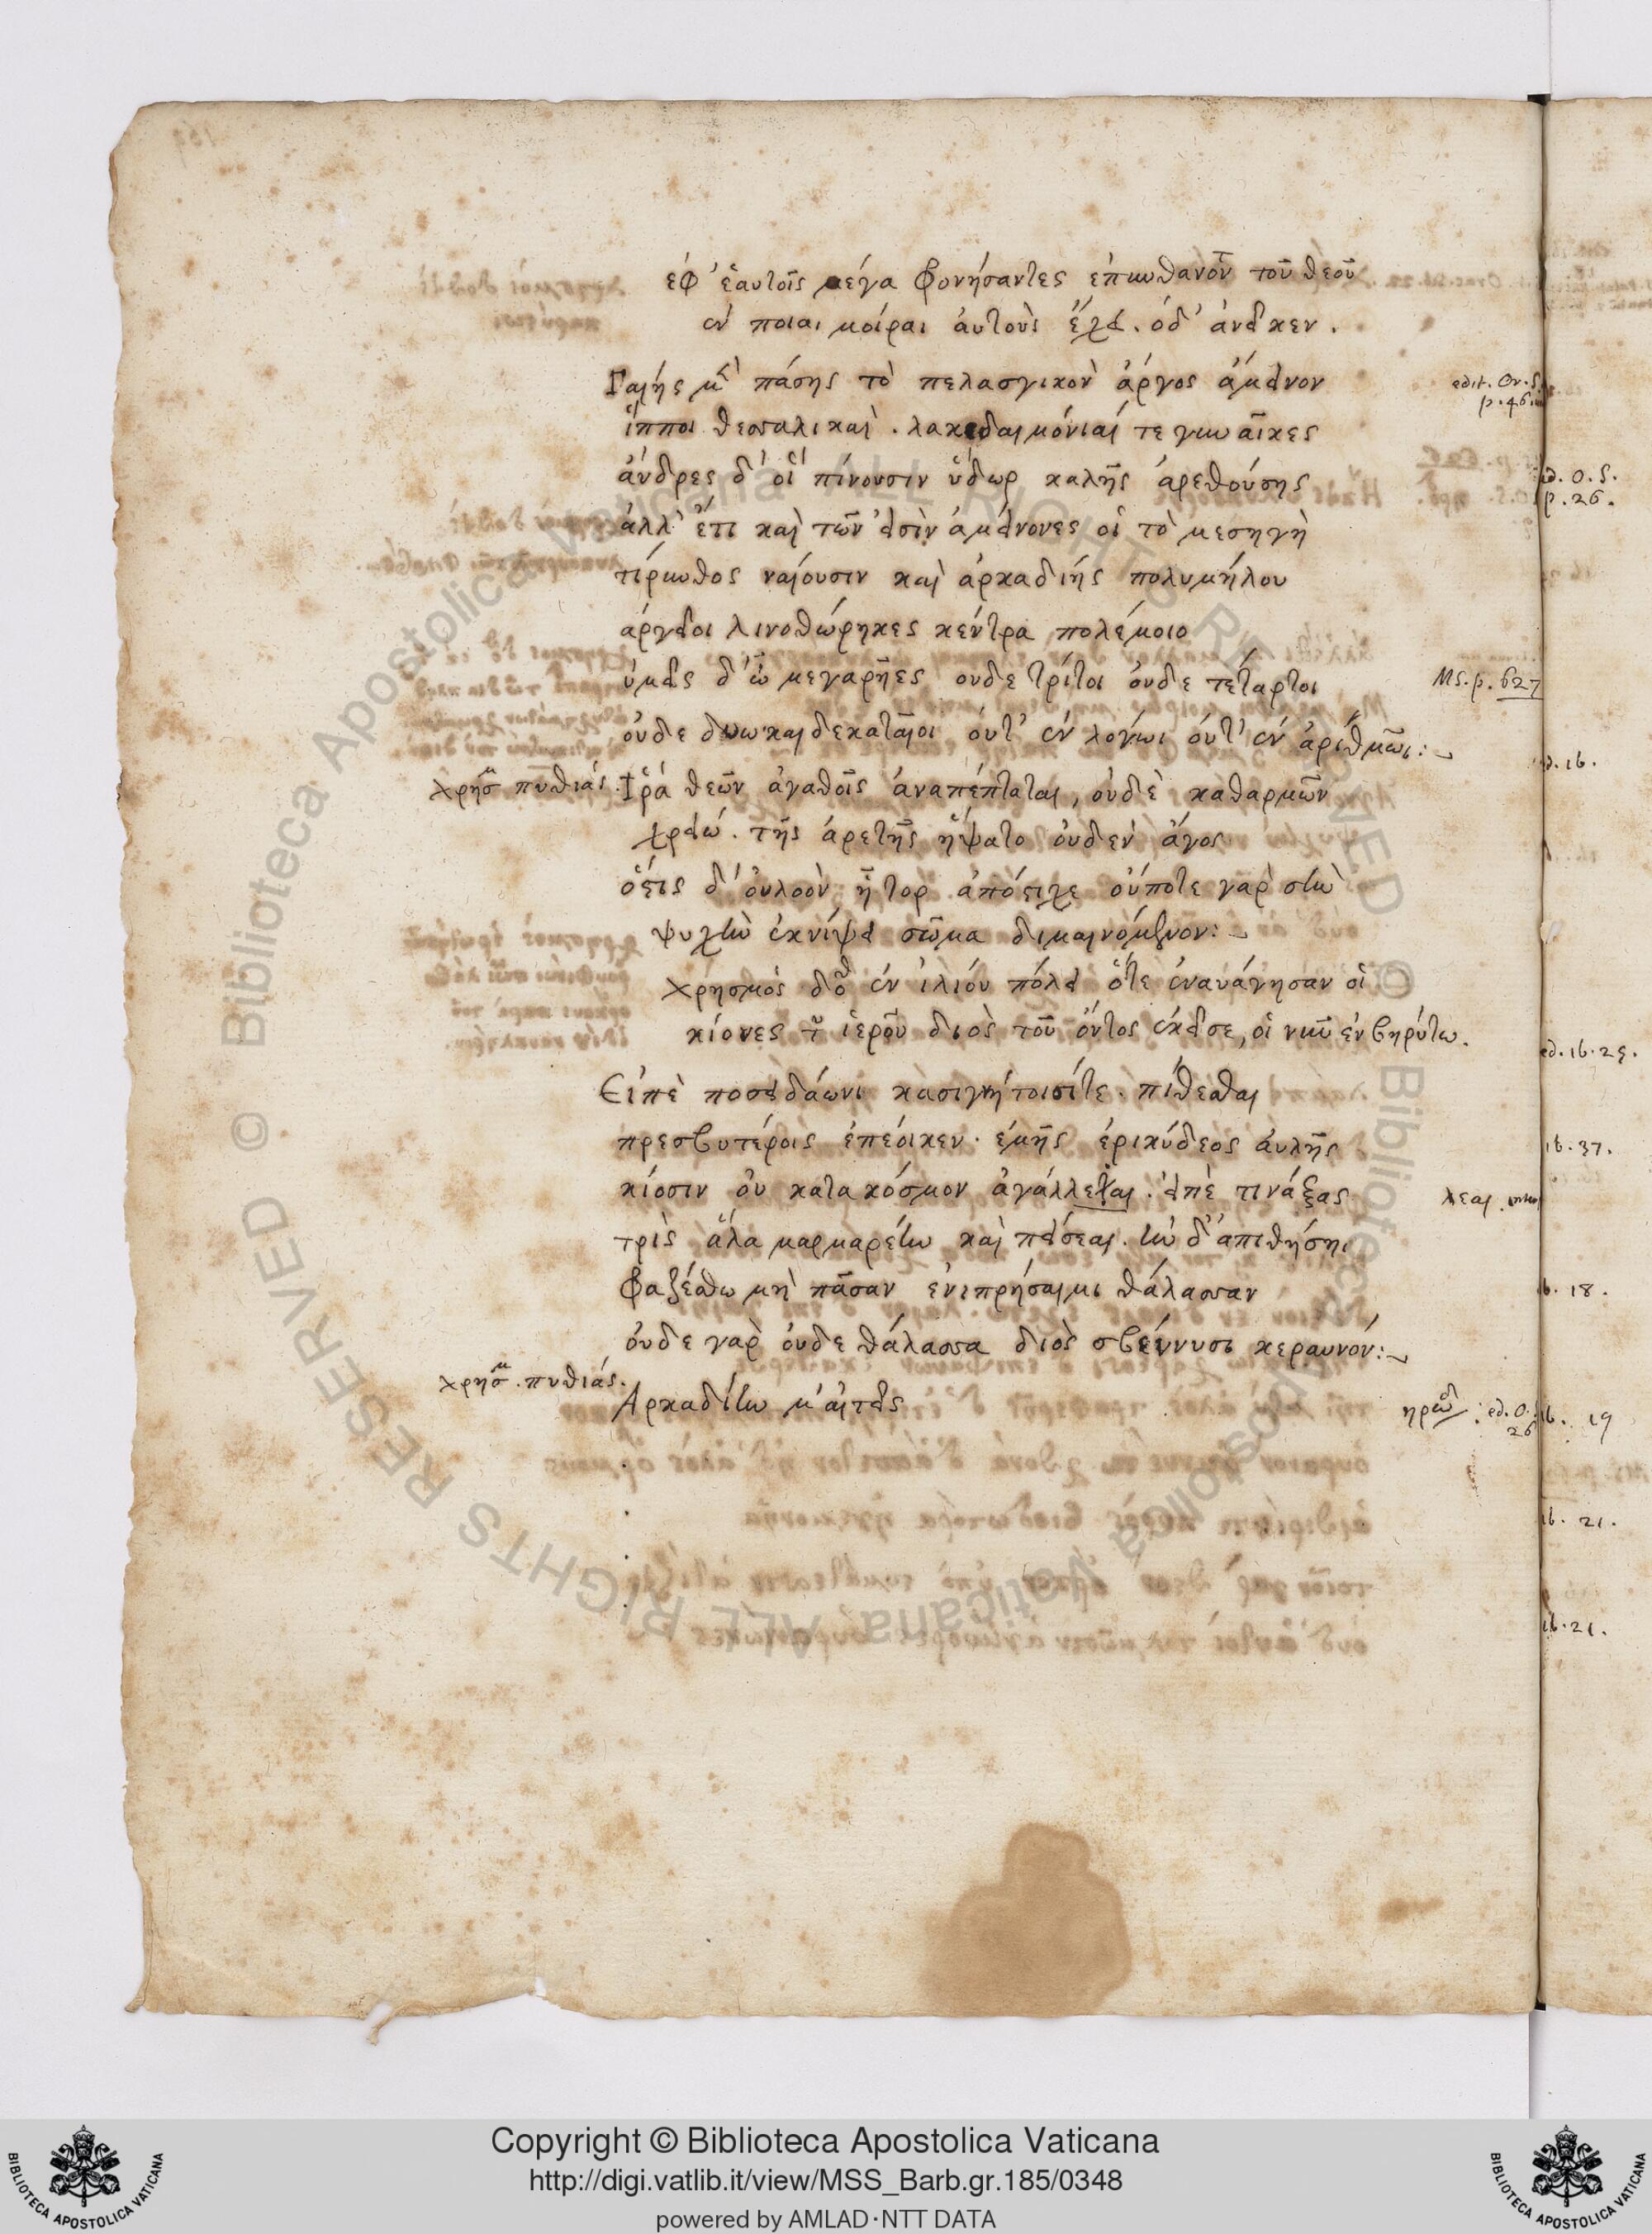 ἐφ' ἑαυτοῖς μέγα φονήσαντες ἐπυνθάνον τοῦ θεοῦ
ἐν ποίαι μοίραι ἀυτοὺς ἔχει. ὁδ' ἀνεῖκεν.
Γαίης μὲν πάσης τὸ πελασγικὸν ἄργος ἄμεινον
ἵπποι θεσσαλικαὶ. λακεδαιμόνιαί τε γυναῖκες
ἄνδρες δ' οἳ πίνουσιν ὕδωρ καλῆς ἀρεθούσης
ἀλλ' ἔτι καὶ τῶν εἰσὶν ἀμείνονες οἳ τὸ μεσηγὺ
τίρυνθος ναίουσιν καὶ ἀρκαδίης πολυμήλου
ἀργεῖοι λινοθώρηκες κέντρα πολέμοιο
ὑμεῖς δ' ὦ μεγαρῆες οὐδε τρίτοι ὀυδε τέταρτοι
ὀυδε δυωκαιδεκαταῖοι ὀύτ' ἐν λόγωι ὀύτ' ἐν ἀριθμῶι:
χρησμ πυθιάς. Ἱρά θεῶν ἀγαθοῖς ἀναπέπταται, ὀυδὲ καθαρμῶν
χρειώ. τῆς ἀρετῆς ἥψατο ὀυδεν ἄγος
ὅστις δ' ὀυλοὸν ἦτορ ἀπόστιχε ὀύποτε γὰρ σὴν
ψυχὴν ἐκνίψει σῶμα διμαινόμενον:
χρησμὸς δοθ ἐν ἡλιόυ πόλει ὅτε ἐναυάγησαν οἱ
κίονες τοῦ ἱεροῦ διὸς τοῦ ὄντος ἐκεῖσε, οἱ νῦν ἐν βηρύτω.
Εἰπὲ ποσειδάωνι κασιγνήτοισίτε. πίθεσθαι
πρεσβυτέροις ἐπέοικεν. ἐμῆς ἐρικύδεος ἀυλῆς
κίοσιν ὀυ κατα κόσμον ἀγάλλεται. εἰπὲ τινάξας
τρὶς ἅλα μαρμαρέην καὶ πείσεαι. ἢν δ' ἀπιθήσηι
φραζέσθω μὴ πᾶσαν ἐνιπρήσαιμι θάλασσαν
ὀυδε γὰρ ὀυδε θάλασσα διὸς σβέννυσι κεραυνόν:
χρησμ. πυθιάς.
Αρκαδίην μ' αἰτεῖς
edit. Or. S.
p. 46.
ed. O. S.
p. 26.
MS. p. 627
ηροδ. ed. O.
26
ib. 16.
ed. 16. 25.
ib. 37.
ib. 18.
ib. 19
ib. 21.
ib. 21.
Copyright © Biblioteca Apostolica Vaticana
http://digi.vatlib.it/view/MSS_Barb.gr.185/0348
powered by AMLAD·NTT DATA
BIBLIOTECA APOSTOLICA VATICANA
BIBLIOTECA APOSTOLICA VATICANA
© Biblioteca Apostolica Vaticana ALL RIGHTS RESERVED © Biblioteca Apostolica Vaticana ALL RIGHTS RESERVED